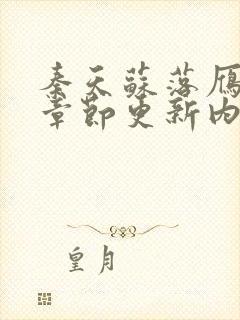 秦天蘇落雁
章節更新內
皇月